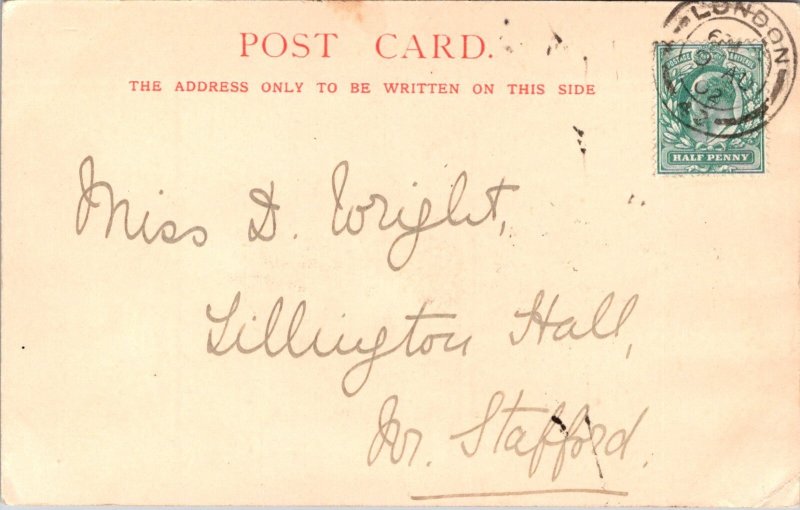 POST CARD.
THE ADDRESS ONLY TO BE WRITTEN ON THIS SIDE
LONDON
9 AU
02
POSTAGE REVENUE
HALF PENNY
Miss D. Wright,
Lillington Hall,
Nr. Stafford.